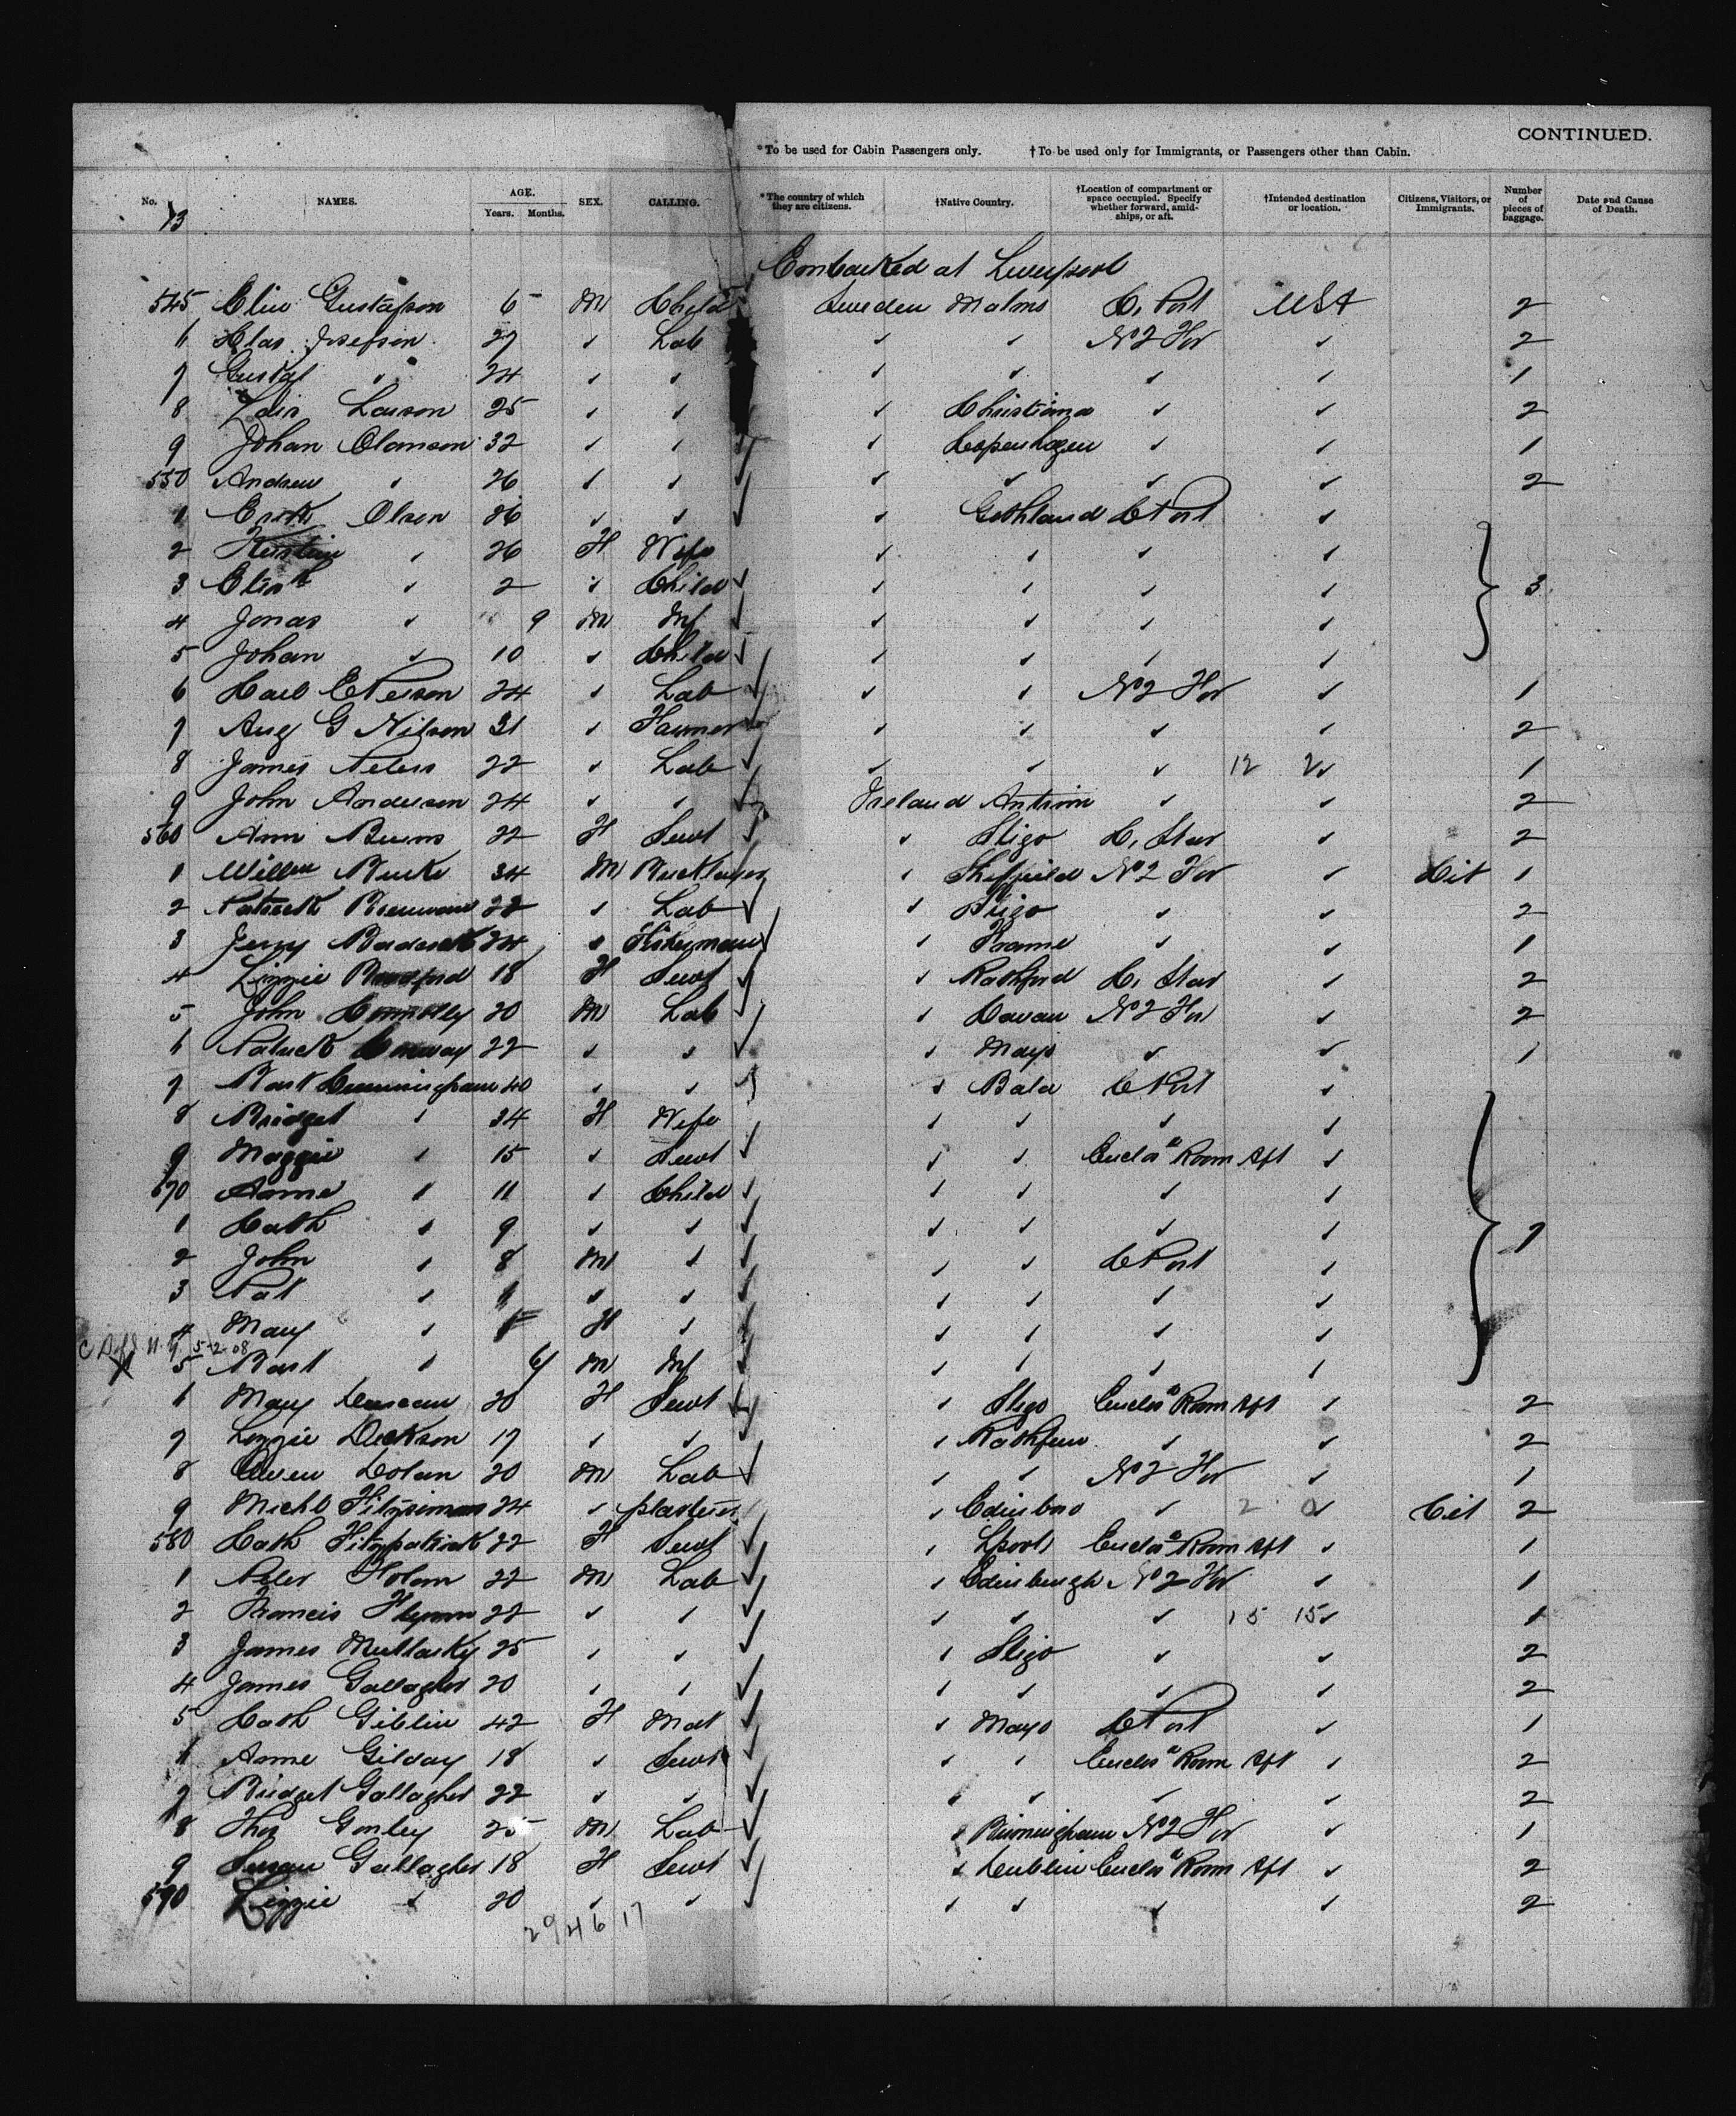 CONTINUED.
*To be used for Cabin Passengers only. †To be used only for Immigrants, or Passengers other than Cabin.
No. NAMES. AGE. Years. Months. SEX. CALLING. *The country of which they are citizens. †Native Country. †Location of compartment or space occupied. Specify whether forward, amidships, or aft. †Intended destination or location. Citizens, Visitors, or Immigrants. Number of pieces of baggage. Date and Cause of Death.
13
Embarked at Liverpool
545 Gustafson 6 M Child Sweden Malmo C. Port USA 2
6 Josefson 27 ✓ Lab ✓ ✓ No 2 For ✓ 2
7 Gustaf ✓ 24 ✓ ✓ ✓ ✓ ✓ ✓ 1
8 Larson 25 ✓ ✓ ✓ Christiana ✓ ✓ 2
9 Johan Olanson 32 ✓ ✓ ✓ Copenhagen ✓ ✓ 1
550 Andrew ✓ 26 ✓ ✓ ✓ ✓ ✓ ✓ 2
1 Olsen 36 ✓ ✓ ✓ Gothland C Port ✓
2 ✓ 26 F Wife ✓ ✓ ✓ ✓
3 ✓ 2 ✓ Child ✓ ✓ ✓ ✓ 3
4 Jonas ✓ 9 M Inf ✓ ✓ ✓ ✓
5 Johan ✓ 10 ✓ Child ✓ ✓ ✓ ✓
6 24 ✓ Lab ✓ ✓ No 2 For ✓ 1
7 Aug G Nilson 31 ✓ Farmer ✓ ✓ ✓ ✓ 2
8 James Peters 22 ✓ Lab ✓ ✓ ✓ 12 2 ✓ 1
9 John Anderson 24 ✓ ✓ Ireland Antrim ✓ ✓ 2
560 Ann Burns 22 F Servt ✓ Sligo C. Star ✓ 2
1 Burke 34 M Bricklayer ✓ Sheffield No 2 For ✓ Cit 1
2 22 ✓ Lab ✓ Sligo ✓ ✓ 2
3 Jerry 24 ✓ Fisherman ✓ ✓ ✓ 1
4 Lizzie Bradford 18 F Servt ✓ C. Star ✓ 2
5 John Connolly 20 M Lab ✓ Cavan No 2 For ✓ 2
6 Patrick Conway 22 ✓ ✓ ✓ Mayo ✓ ✓ 1
7 Bart Cunningham 40 ✓ ✓ ✓ Bala C Port ✓
8 Bridget ✓ 34 F Wife ✓ ✓ ✓ ✓
9 Maggie ✓ 15 ✓ Servt ✓ ✓ Enclosd Room Aft ✓
570 Anne ✓ 11 ✓ Child ✓ ✓ ✓ ✓
1 Cath ✓ 9 ✓ ✓ ✓ ✓ ✓ ✓ 7
2 John ✓ 8 M ✓ ✓ ✓ C Port ✓
3 Pat ✓ ✓ ✓ ✓ ✓ ✓ ✓
4 Mary ✓ F ✓ ✓ ✓ ✓ ✓
5-2-08
5 Bart ✓ 6 M Inf ✓ ✓ ✓ ✓
6 Mary Duncan 20 F Servt ✓ Sligo Enclosd Room Aft ✓ 2
7 Lizzie Dickson 17 ✓ ✓ ✓ ✓ ✓ 2
8 Owen Dolan 20 M Lab ✓ ✓ No 2 For ✓ 1
9 Michl Fitzsimons 24 ✓ plasterer ✓ Edinboro ✓ 2 0 ✓ Cit 2
580 Cath Fitzpatrick 22 F Servt ✓ Lpool Enclosd Room Aft ✓ 1
1 Peter 22 M Lab ✓ Edinburgh No 2 For ✓ 1
2 Francis Flynn 22 ✓ ✓ ✓ ✓ ✓ 15 15 ✓ 1
3 James Mullarky 25 ✓ ✓ ✓ Sligo ✓ ✓ 2
4 James Gallagher 20 ✓ ✓ ✓ ✓ ✓ ✓ 2
5 Cath Giblin 42 F Mat ✓ Mayo C Port ✓ 1
6 Anne Gilday 18 ✓ Servt ✓ ✓ Enclosd Room Aft ✓ 2
7 Bridget Gallagher 22 ✓ ✓ ✓ ✓ ✓ ✓ 2
8 Thos Gonley 25 M Lab ✓ Birmingham No 2 For ✓ 1
9 Susan Gallagher 18 F Servt ✓ Dublin Enclosd Room Aft ✓ 2
590 Lizzie ✓ 20 ✓ ✓ ✓ ✓ ✓ ✓ 2
29 4 6 17